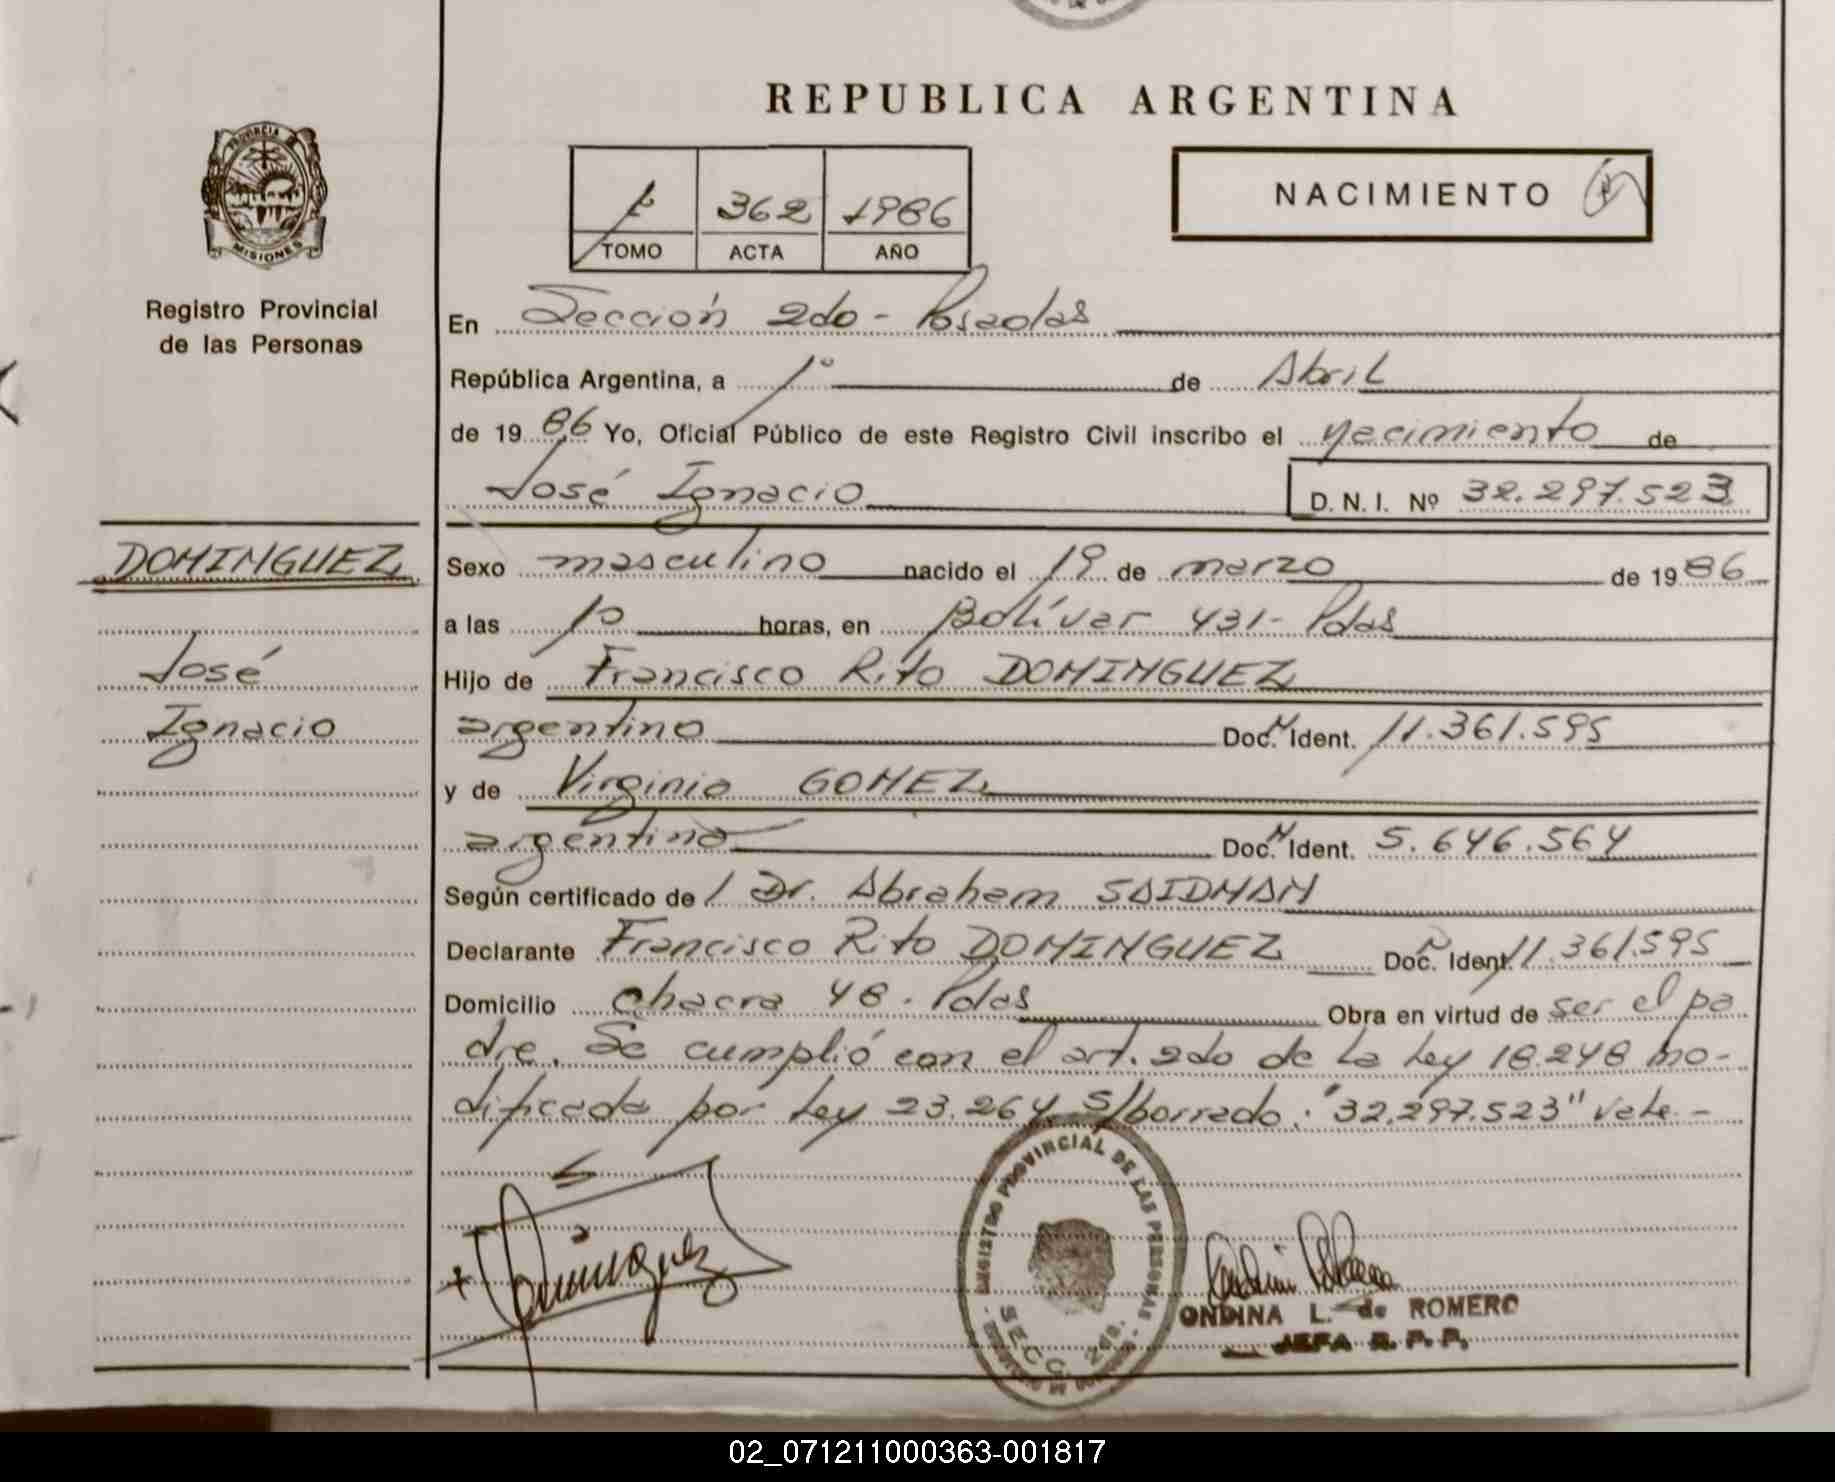 REPUBLICA ARGENTINA
PROVINCIA DE
MISIONES
Registro Provincial
de las Personas
1º 362 1986
TOMO ACTA AÑO
NACIMIENTO
En Sección 2do - Posadas
República Argentina, a 1º de Abril
de 1986 Yo, Oficial Público de este Registro Civil inscribo el nacimiento de
José Ignacio D. N. I. Nº 32.297.523
DOMINGUEZ
José
Ignacio
Sexo masculino nacido el 19 de marzo de 1986
a las 10 horas, en Bolívar 431 - Pdas
Hijo de Francisco Rito DOMINGUEZ
argentino Doc. N Ident. 11.361.595
y de Virginia GOMEZ
argentina Doc. N Ident. 5.646.564
Según certificado de / Dr. Abraham SAIDMAN
Declarante Francisco Rito DOMINGUEZ Doc. N Ident. 11.361.595
Domicilio chacra 48 - Pdas Obra en virtud de ser el pa
dre. Se cumplió con el art. 2do de la Ley 18.248 mo-
dificada por Ley 23.264 s/borrado: "32.297.523" vale.-
REGISTRO PROVINCIAL DE LAS PERSONAS
SECC. 2da.
Dominguez
ONDINA L. de ROMERO
JEFA R. P. P.
02_071211000363-001817